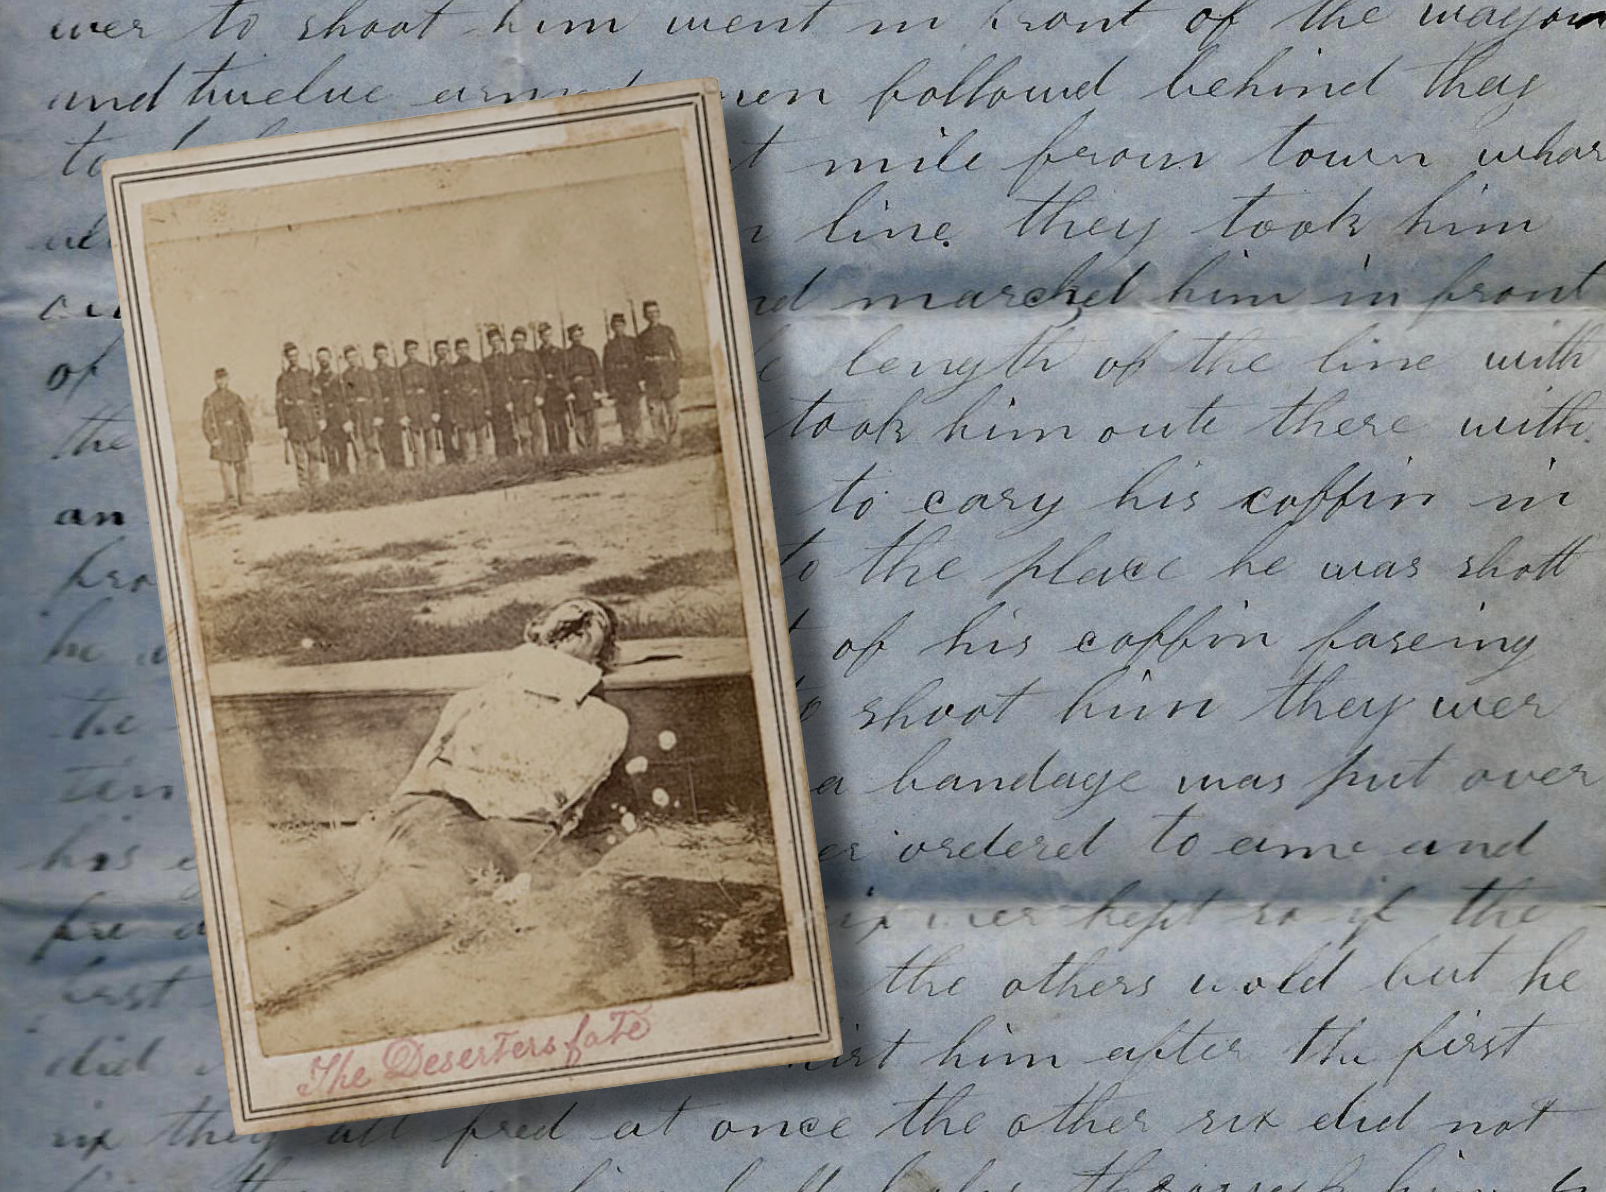 wer to shoot him went in front of the wagon
and twelve armed men followd behind they
to mile from town whar
line they took him
marched him in front
of length of the line with
the took him oute there with
an to cary his coffin in
fro to the place he was shott
he of his coffin faseing
the shoot him they wer
ten a bandage was put over
his ordered to ame and
fire wer kept so if the
first the others wold but he
did him after the first
six they all fired at once the other six did not
The Deserters fate